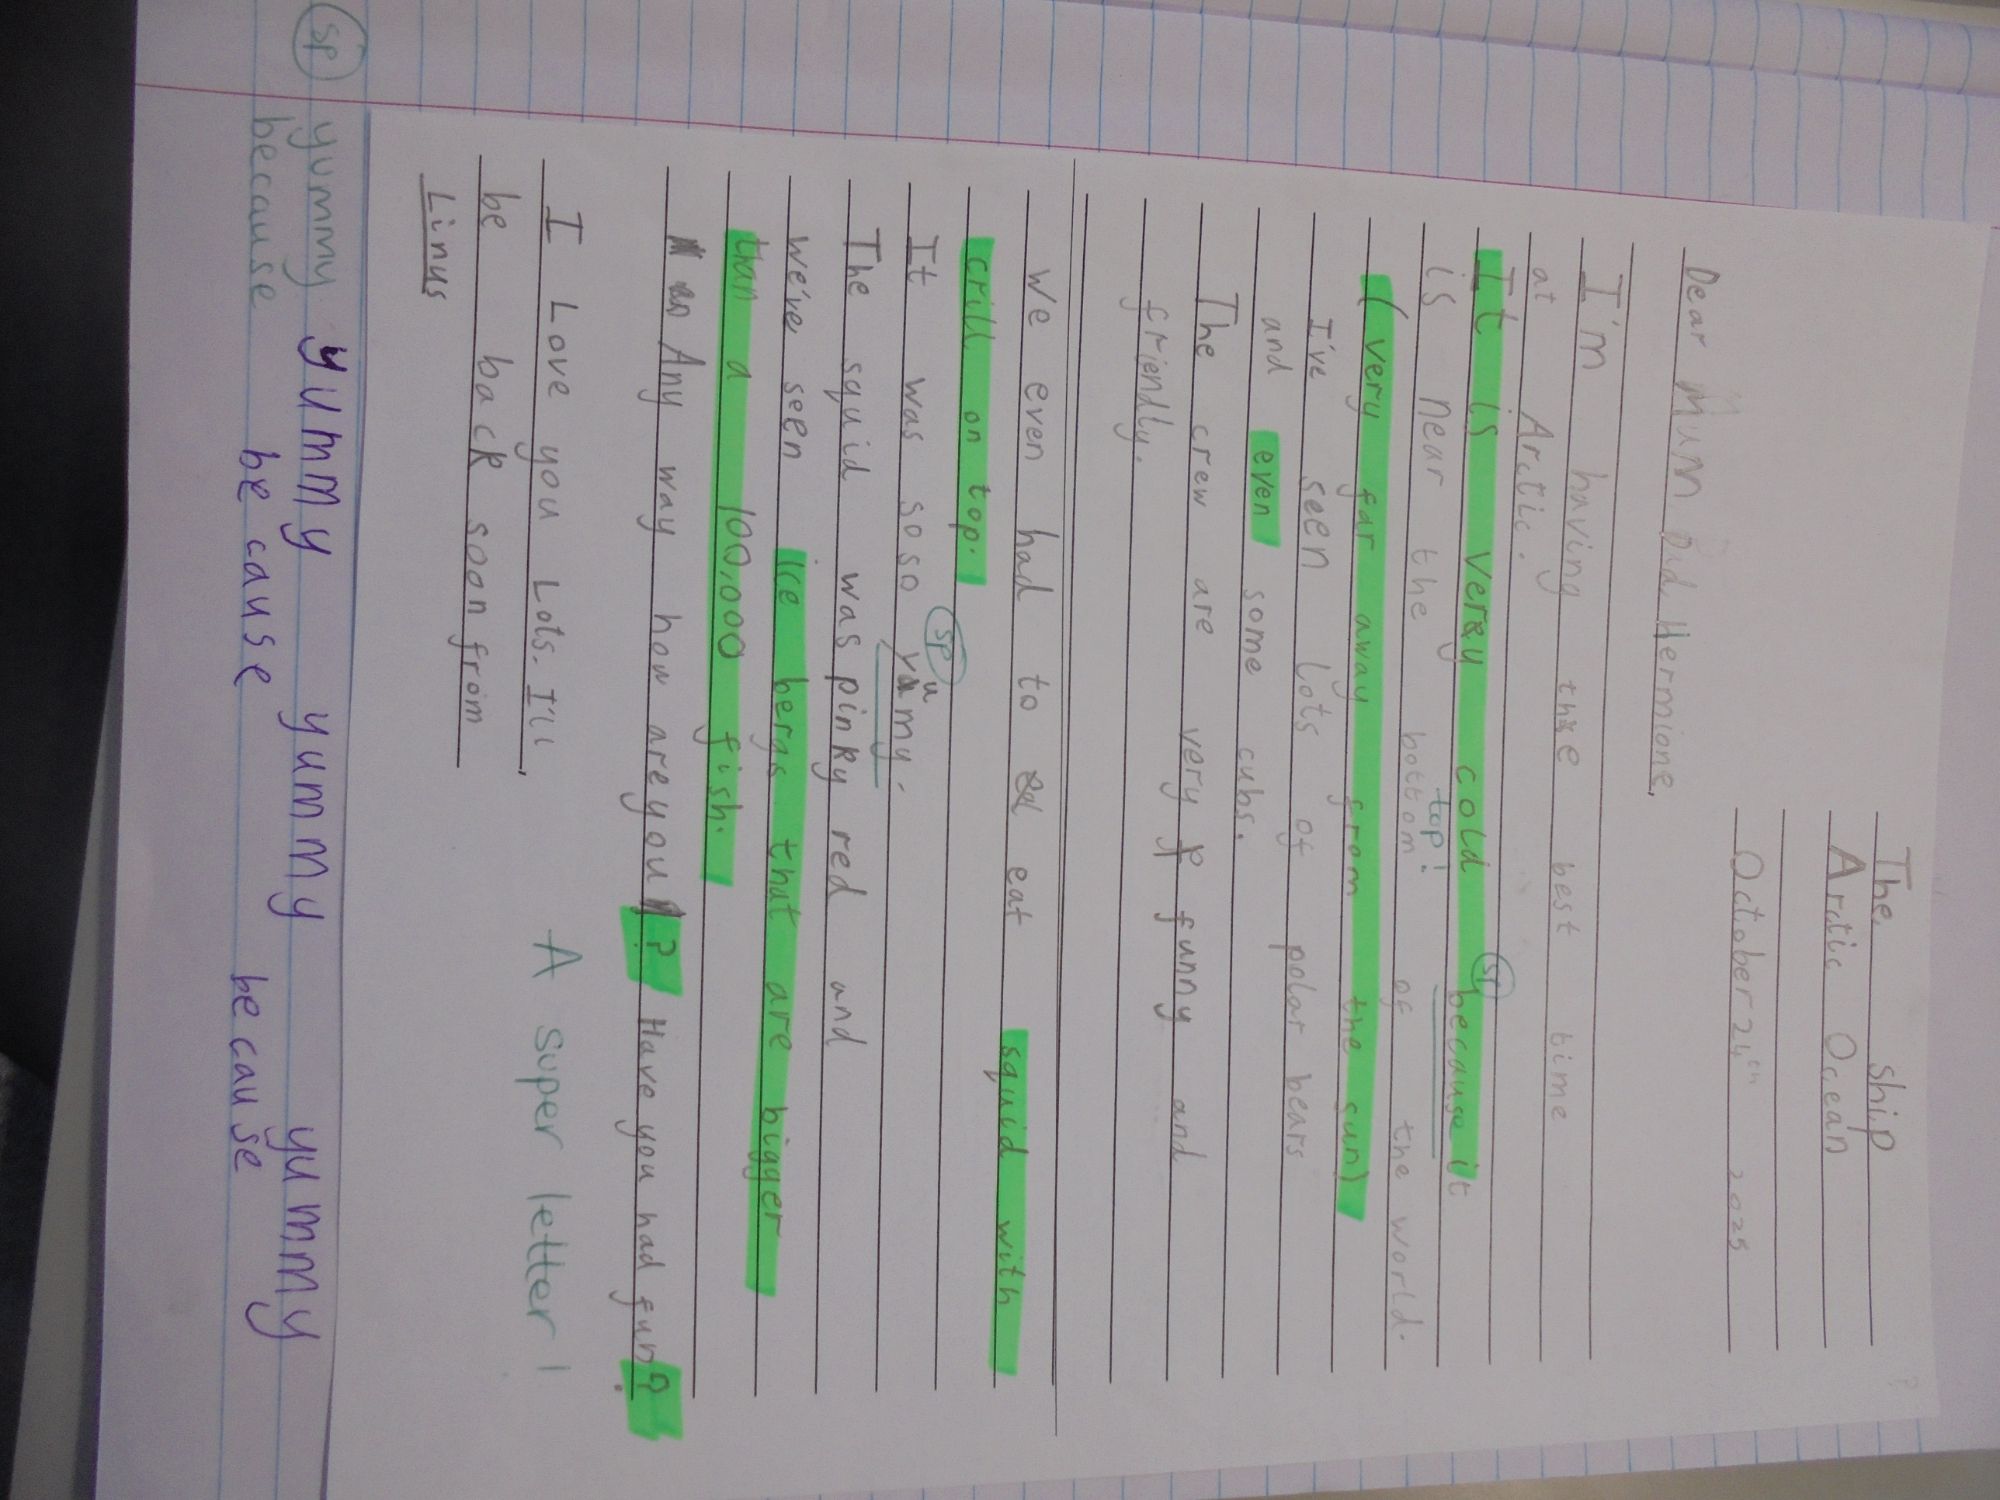 The ship
Arctic Ocean
October 24th 2025
Dear Mum Dad Hermione,
I'm having the best time
at Arctic.
sp
It is very cold because it
top!
is near the bottom of the world.
(very far away from the sun)
I've seen lots of polar bears
and even some cubs.
The crew are very funny and
friendly.
We even had to eat squid with
crill on top.
sp
It was so so yumy.
The squid was pinky red and
we've seen ice bergs that are bigger
than a 100,000 fish.
Any way how are you? Have you had fun?
I Love you Lots. I'll
be back soon from
Linus
A super letter!
sp yummy yummy yummy yummy
because be cause be cause